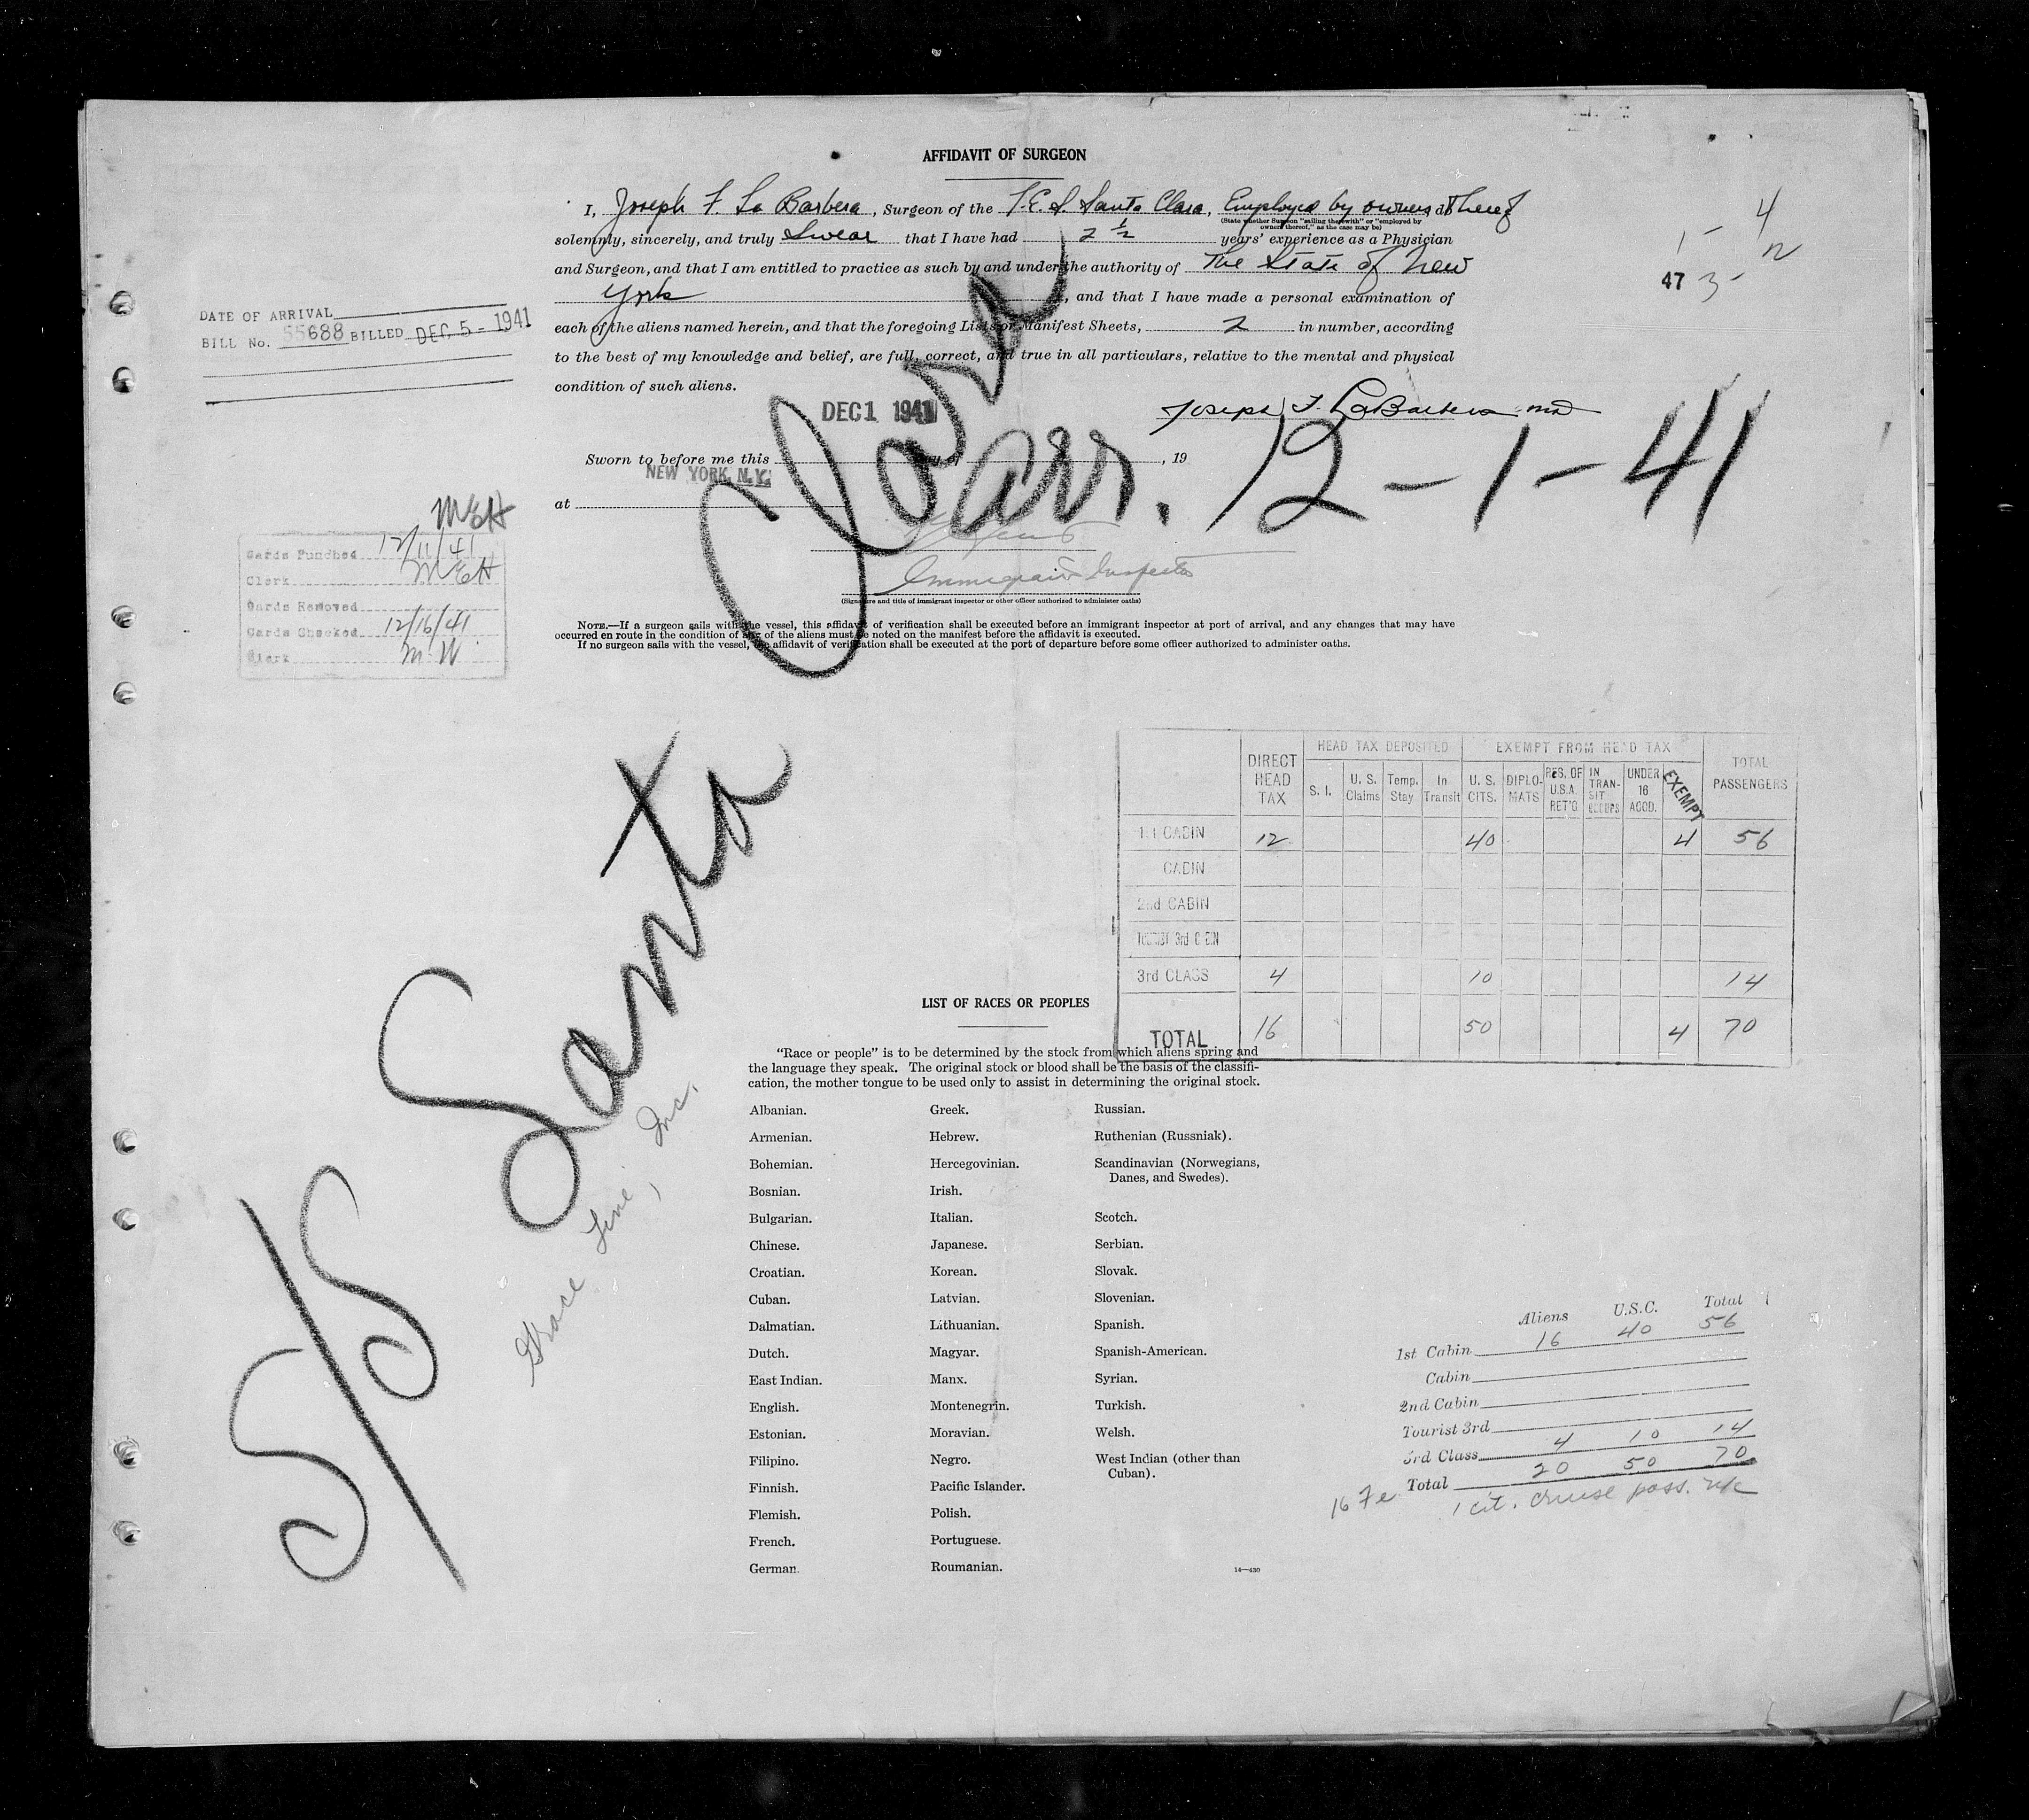 AFFIDAVIT OF SURGEON
I, Joseph F. La Barbera, Surgeon of the T.E.S. Santa Clara, Employed by owners thereof do
(State whether Surgeon "sailing therewith" or "employed by
owners thereof," as the case may be)
solemnly, sincerely, and truly Swear that I have had 2 1/2 years' experience as a Physician
and Surgeon, and that I am entitled to practice as such by and under the authority of The State of New
York, and that I have made a personal examination of
each of the aliens named herein, and that the foregoing Lists or Manifest Sheets, 2 in number, according
to the best of my knowledge and belief, are full, correct, and true in all particulars, relative to the mental and physical
condition of such aliens.
1- 4
47 3- 2
DATE OF ARRIVAL
BILL No. 55688 BILLED DEC 5 - 1941
DEC 1 1941
Joseph F. LaBarbera MD
Sworn to before me this day of , 19
NEW YORK, N.Y.
at
Immigrant Inspector
(Signature and title of immigrant inspector or other officer authorized to administer oaths)
NOTE.—If a surgeon sails with the vessel, this affidavit of verification shall be executed before an immigrant inspector at port of arrival, and any changes that may have
occurred en route in the condition of any of the aliens must be noted on the manifest before the affidavit is executed.
If no surgeon sails with the vessel, the affidavit of verification shall be executed at the port of departure before some officer authorized to administer oaths.
MEH
Cards Punched 12/11/41
Clerk MEH
Cards Removed
Cards Checked 12/16/41
Clerk M.W.
S/S Santa Clara
arr. 12-1-41
Grace Line, Inc.
DIRECT HEAD TAX HEAD TAX DEPOSITED EXEMPT FROM HEAD TAX TOTAL PASSENGERS
S. I. U. S. Claims Temp. Stay In Transit U. S. CITS. DIPLO-MATS RES. OF U.S.A. RET'G IN TRAN-SIT UNDER 16 ACCD. EXEMPT
1st CABIN 12 40 4 56
CABIN
2nd CABIN
TOURIST 3rd CABIN
3rd CLASS 4 10 14
TOTAL 16 50 4 70
LIST OF RACES OR PEOPLES
"Race or people" is to be determined by the stock from which aliens spring and
the language they speak. The original stock or blood shall be the basis of the classifi-
cation, the mother tongue to be used only to assist in determining the original stock.
Albanian. Greek. Russian.
Armenian. Hebrew. Ruthenian (Russniak).
Bohemian. Hercegovinian. Scandinavian (Norwegians,
Danes, and Swedes).
Bosnian. Irish.
Bulgarian. Italian. Scotch.
Chinese. Japanese. Serbian.
Croatian. Korean. Slovak.
Cuban. Latvian. Slovenian.
Dalmatian. Lithuanian. Spanish.
Dutch. Magyar. Spanish-American.
East Indian. Manx. Syrian.
English. Montenegrin. Turkish.
Estonian. Moravian. Welsh.
Filipino. Negro. West Indian (other than
Cuban).
Finnish. Pacific Islander.
Flemish. Polish.
French. Portuguese.
German. Roumanian.
14—430
Aliens U.S.C. Total
1st Cabin 16 40 56
Cabin
2nd Cabin
Tourist 3rd
3rd Class 4 10 14
Total 20 50 70
16 Fe 1 cit. cruise pass.